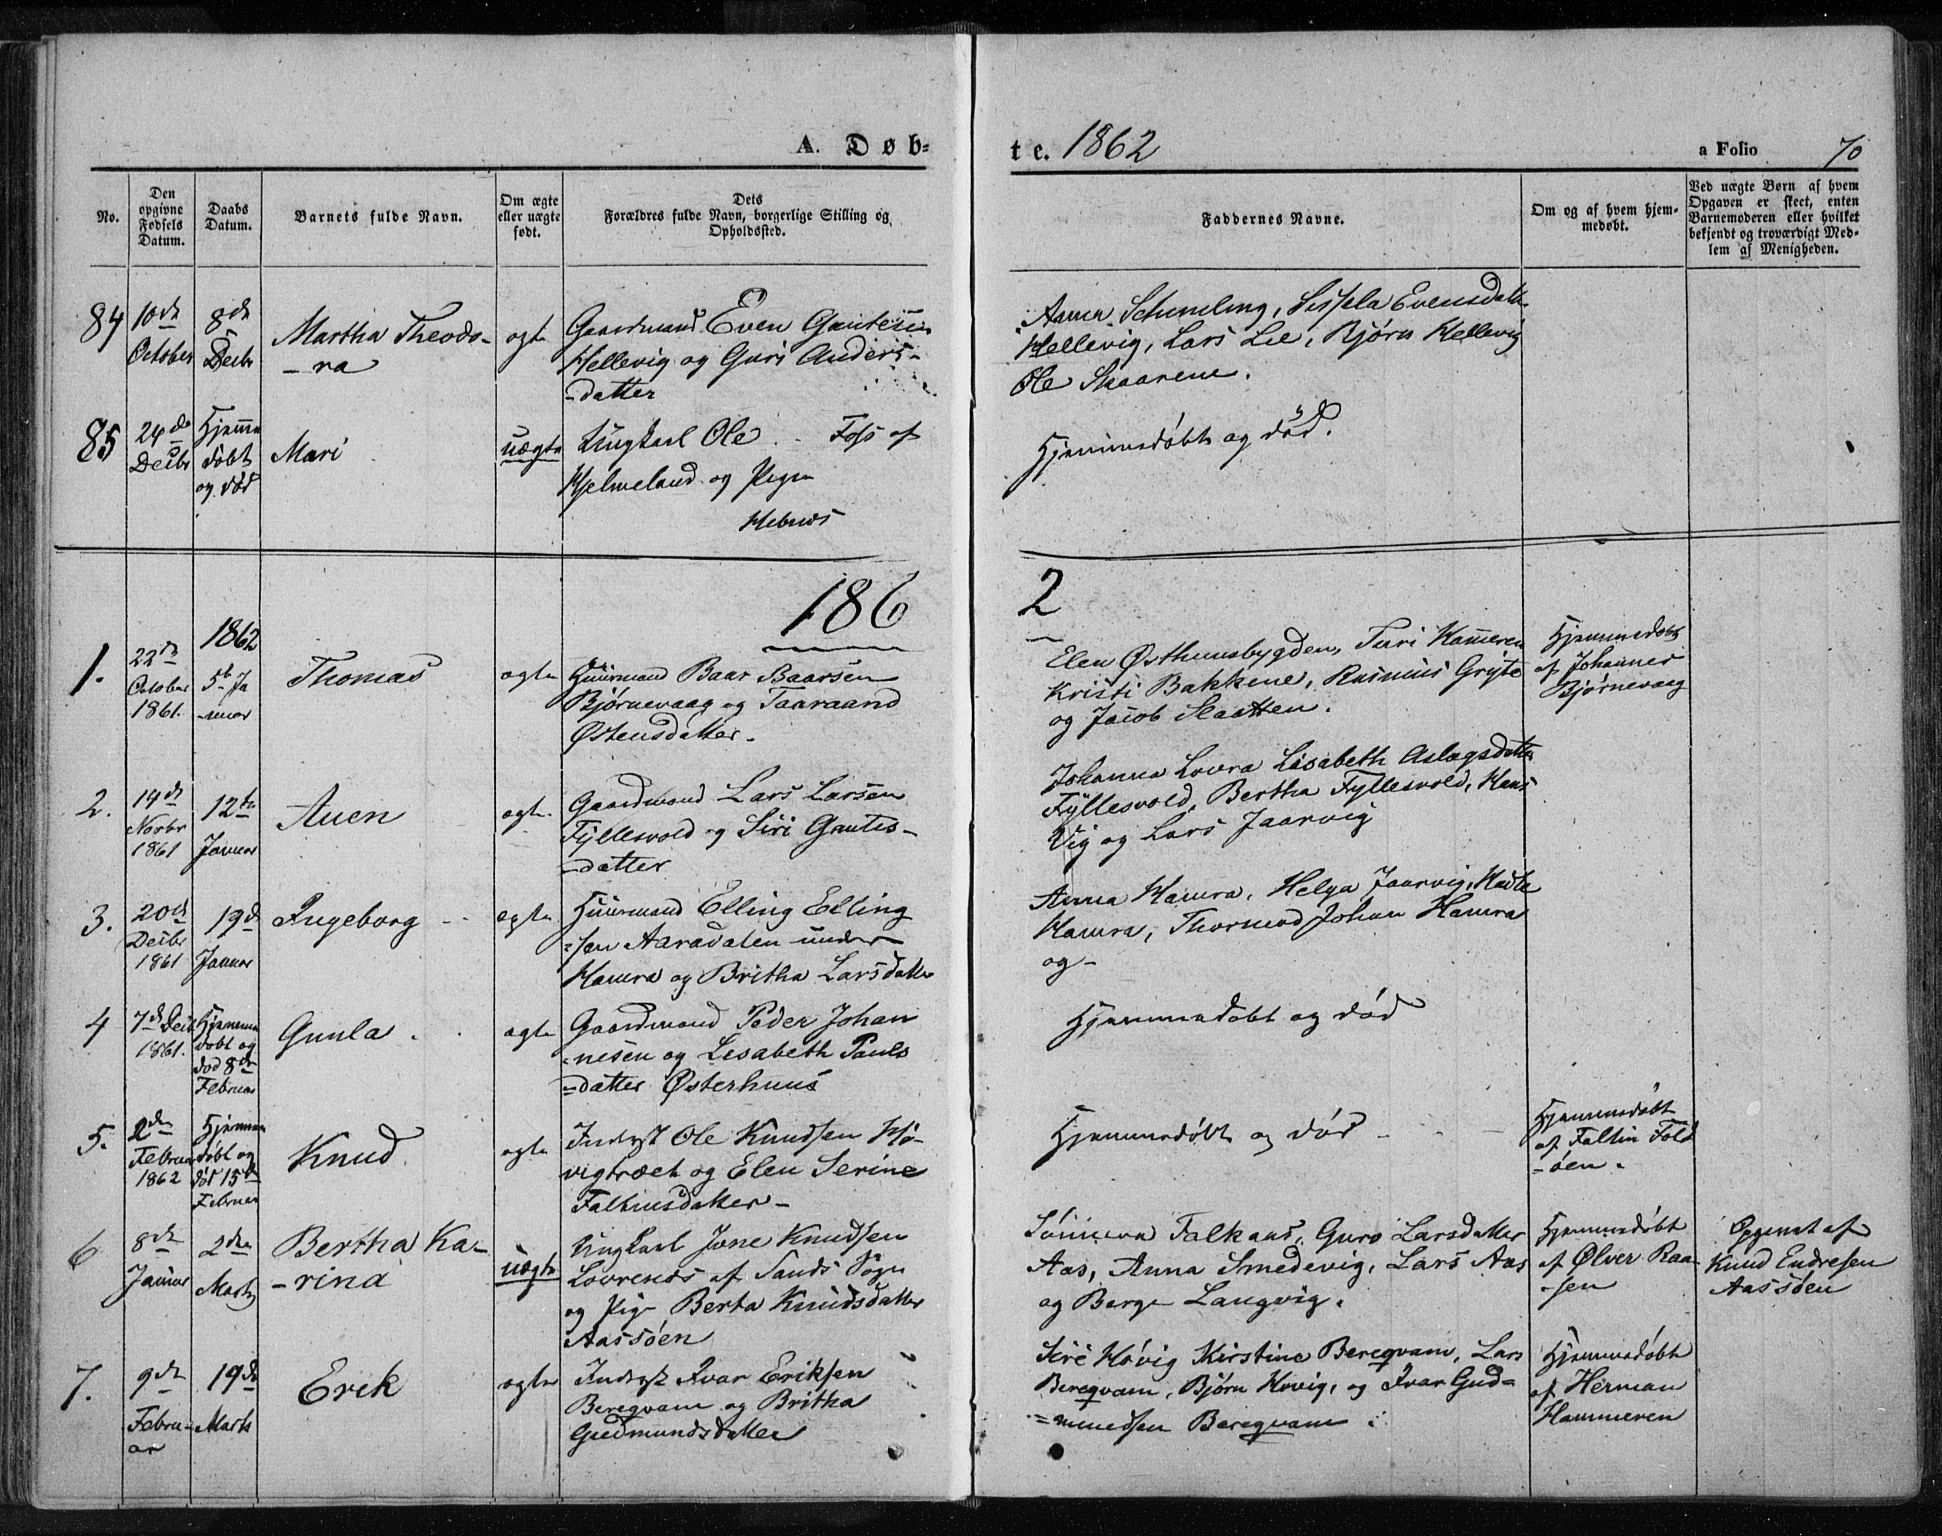 A. Døb-
te. 1862
a Folio 70
No.
Den opgivne Fødsels Datum.
Daabs Datum.
Barnets fulde Navn.
Om ægte eller uægte født.
Dets Forældres fulde Navn, borgerlige Stilling og Opholdssted.
Faddernes Navne.
Om og af hvem hjemmedøbt.
Ved uægte Børn af hvem Opgaven er skeet, enten Barnemoderen eller hvilket bekjendt og troværdigt Medlem af Menigheden.
84
10de October
8de Decbr
Martha Theodo-
-ra
ægte
Gaardmand Even Gautesen
Hellevig og Guri Anders-
-datter
Anna Schmeling, Sissela Evensdatter
Hellevig, Lars Lie, Bjørn Hellevig
Ole Skaarene.
85
24de Decbr
Hjemmedøbt og død
Mari
uægte
Ungkarl Ole Foss af
Hjelmeland og Pigen
Hebnes
Hjemmedøbt og død.
1862
1.
22de October 1861.
1862 5te Januar
Thomas
ægte
Huusmand Baar Baarsen
Bjørnevaag og Taaraand
Østensdatter.
Elen Østhuusbygden, Turi Kameren
Kristi Bakkene, Rasmus Gryte
og Jacob Slaatten.
Hjemmedøbt
af Johannes
Bjørnevaag
2.
14de Novbr 1861
12te Januar
Auen
ægte.
Gaardmand Lars Larsen
Fyllesvold og Siri Gautes-
-datter
Johanna Lovra Lisabeth Aslagsdatter
Fyllesvold, Bertha Fyllesvold, Hans
Vig og Lars Jaarvig
3.
20de Decbr 1861
19de Januar
Ingeborg
ægte
Huusmand Elling Elling
-sen Aaradalen under
Hamra og Britha Larsdatter
Anna Hamra, Helga Jaarvig,
Hamra, Thormod Johan Hamra
og-
4
7de Decbr 1861.
Hjemmedøbt og død 8de Februar
Gunla.
ægte
Gaardmand Peder Johan
-nesen og Lisabeth Pauls
-datter Østerhuus
Hjemmedøbt og død
5.
2den Februar 1862
Hjemmedøbt og død 15de Februar
Knud
ægte
Inderst Ole Knudsen Hø-
vigtræet og Elen Serine
Faltinsdatter-
Hjemmedøbt og død
Hjemmedøbt
af Faltin Fold
-øen.
6
8de Januar
2den Marts
Bertha Ka-
-rina
uægte
Ungkarl Jone Knudsen
Lovrenes af Sands Sogn
og Pige Berta Knudsdatter
Aassøen
Sønneva Falkaas, Guro Larsdatter
Aas, Anna Smedevig, Lars Aas
og Berge Langvig.
Hjemmedøbt
af Ølver Raa-
-sen
Opgivet af
Knud Endresen
Aassøen
7.
9de Febru-
ar
19de Marts
Erik
ægte
Inderst Ivar Eriksen
Bereqvam og Britha
Gudmundsdatter
Siri Høvig Kirstine Bereqvam, Lars
Bereqvam, Bjørn Hovig, og Ivar Gud=
=mundsen Bereqvam.
Hjemmedøbt
af Herman
Hammeren